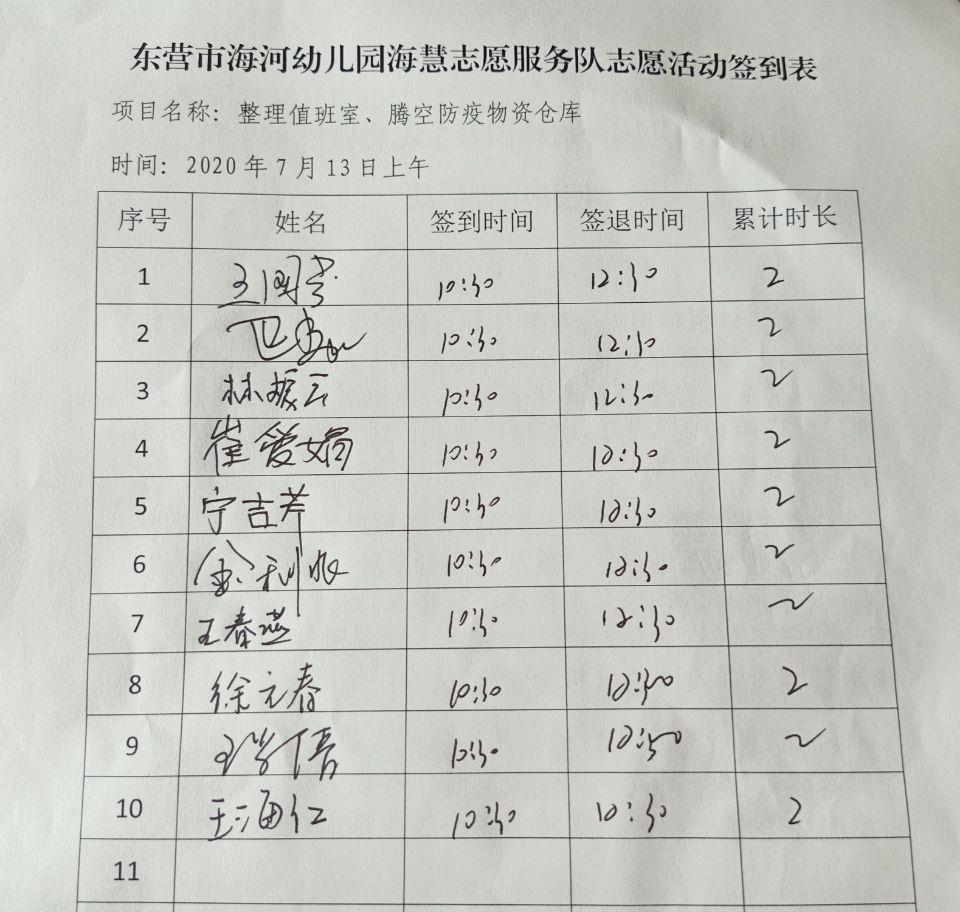 东营市海河幼儿园海慧志愿服务队志愿活动签到表
项目名称：整理值班室、腾空防疫物资仓库
时间：2020年7月13日上午
序号 姓名 签到时间 签退时间 累计时长
1 王国芳 10:30 12:30 2
2 10:30 12:30 2
3 林振云 10:30 12:30 2
4 崔爱娟 10:30 12:30 2
5 宁吉芹 10:30 12:30 2
6 金利 10:30 12:30 2
7 王春燕 10:30 12:30 2
8 徐元春 10:30 12:30 2
9 王 倩 10:30 12:30 2
10 王海仁 10:30 10:30 2
11